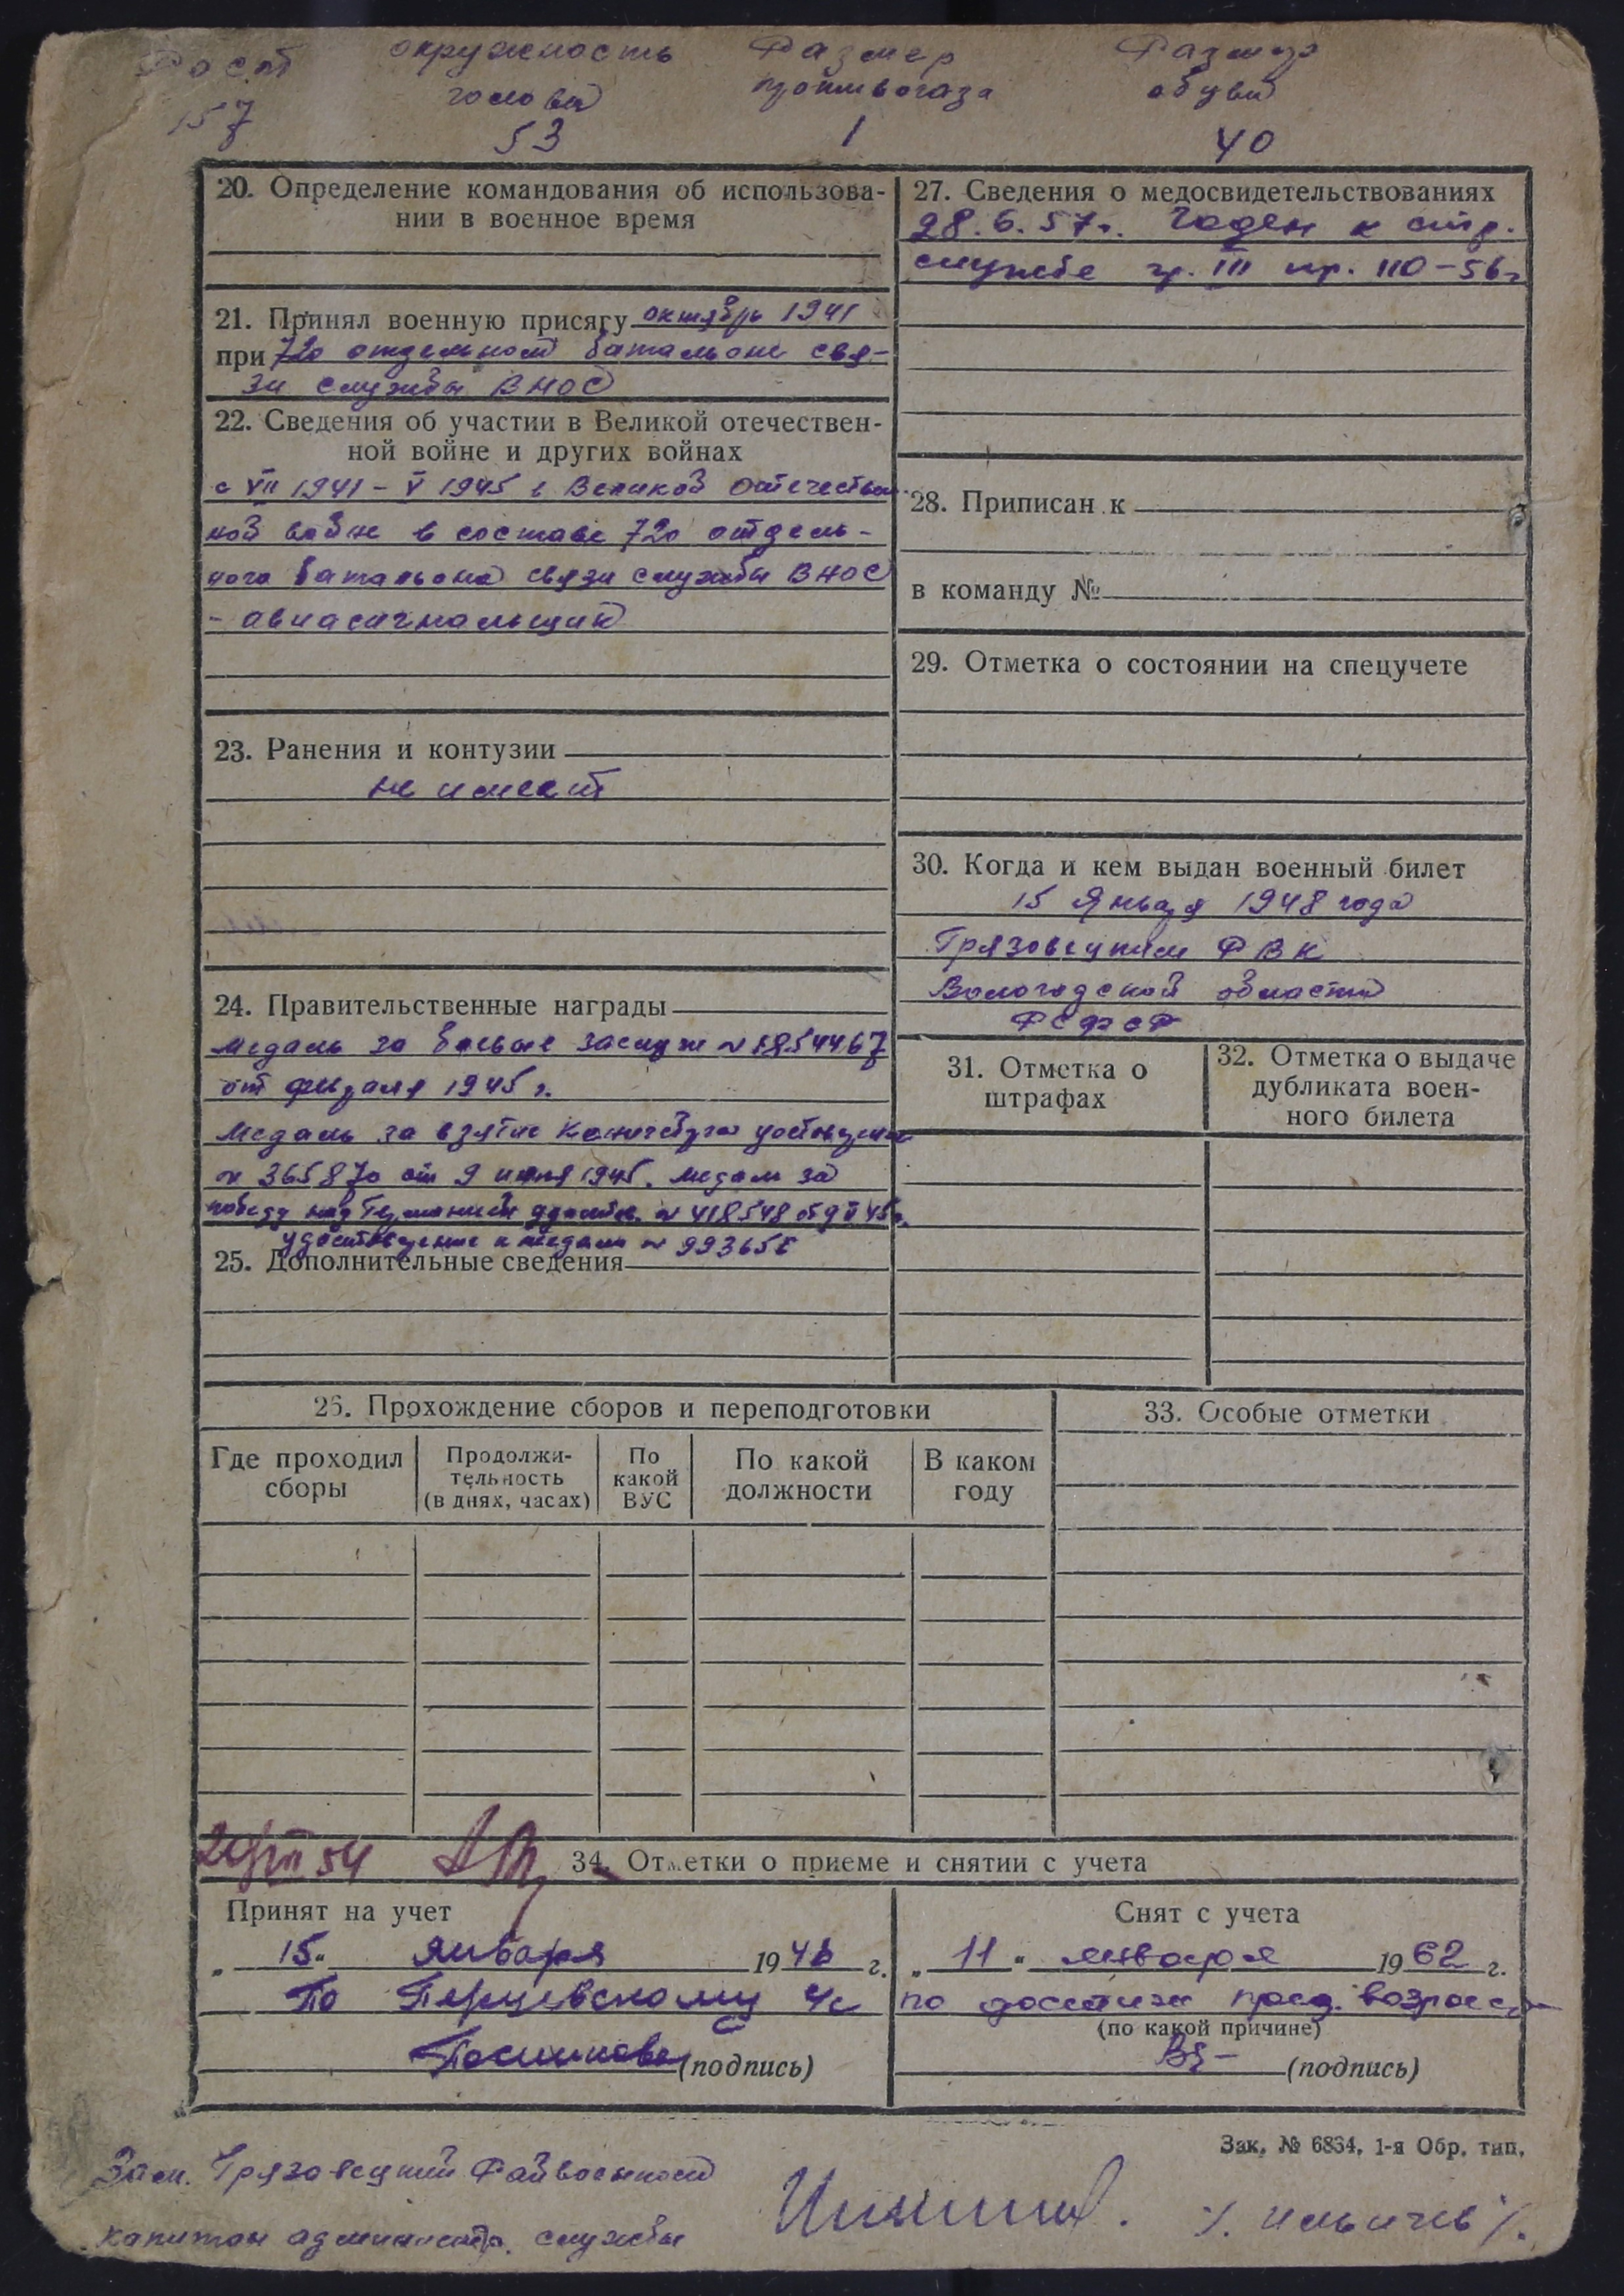 Рост окружность Размер Размер
головы противогаза обуви
157 53 1 40
20. Определение командования об использова-
нии в военное время
21. Принял военную присягу октябрь 1941
при 720 отдельном батальоне свя-
зи службы ВНОС
22. Сведения об участии в Великой отечествен-
ной войне и других войнах
с VII 1941 - V 1945 в Великой отечествен-
ной войне в составе 720 отдель-
ного батальона связи службы ВНОС
- авиасигнальщик
23. Ранения и контузии
не имеет
24. Правительственные награды
медаль за боевые заслуги N 1854467
от февраля 1945 г.
Медаль за взятие Кенигсберга
N 365870 от 9 июня 1945. медаль за
победу над Германией N 418548 от 9 V 45г.
удостоверение к медали N
25. Дополнительные сведения
26. Прохождение сборов и переподготовки
Где проходил сборы
Продолжи-
тельность
(в днях, часах)
По
какой
ВУС
По какой
должности
В каком
году
27. Сведения о медосвидетельствованиях
28.6.57г. Годен к стр.
службе гр. III пр. 110-56г
28. Приписан к
в команду №
29. Отметка о состоянии на спецучете
30. Когда и кем выдан военный билет
15 Января 1948 года
Грязовецким РВК
Вологодской области
РСФСР
31. Отметка о
штрафах
32. Отметка о выдаче
дубликата воен-
ного билета
33. Особые отметки
54
34. Отметки о приеме и снятии с учета
Принят на учет
„ 15 " января 1948 г.
По Перцевскому с/с
(подпись)
Снят с учета
„ 11 " января 1962 г.
по достиж пред. возраста
(по какой причине)
(подпись)
Зак. № 6834. 1-я Обр. тип.
Зам. Грязовецкий Райвоенком
капитан администр. службы /. Ильичев /.